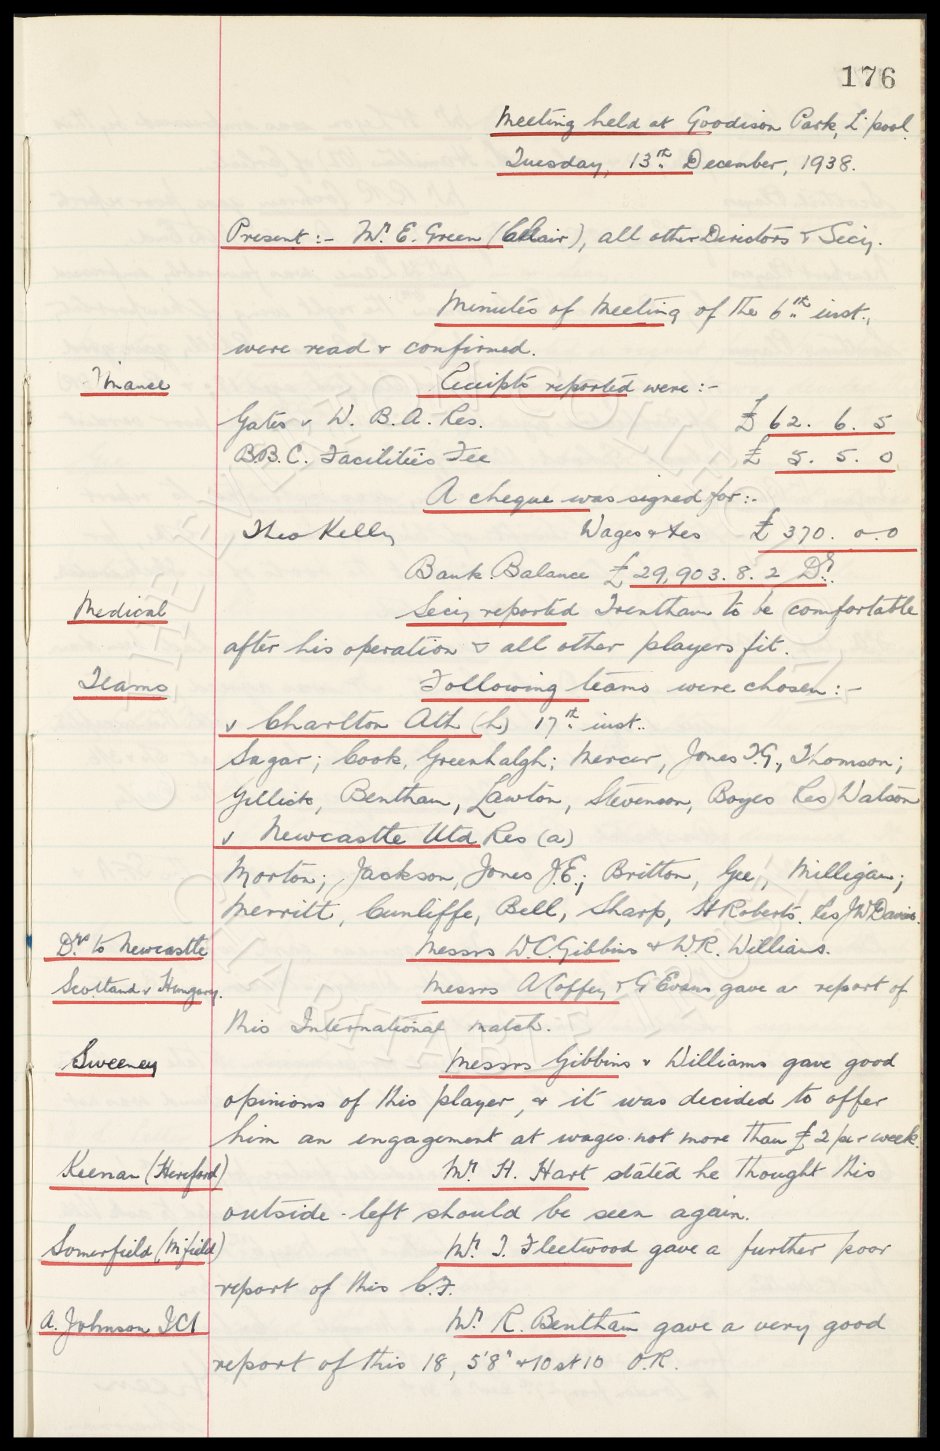 176
Meeting held at Goodison Park, L'pool.
Tuesday, 13th December, 1938.
Present:- Mr. E. Green (Chair), all other Directors & Secy.
Minutes of Meeting of the 6th inst.,
were read & confirmed.
Finance
Receipts reported were:-
Gates v W. B. A. Res. £ 62. 6. 5
B.B.C. Facilities Fee £ 5. 5. 0
A cheque was signed for:-
Theo Kelly Wages & Fees £ 370. 0. 0
Bank Balance £ 29,903. 8. 2 Dr.
Medical Secy reported Trentham to be comfortable
after his operation & all other players fit.
Teams Following teams were chosen:-
v Charlton Ath (h) 17th inst..
Sagar; Cook, Greenhalgh; Mercer, Jones T.G., Thomson;
Gillick, Bentham, Lawton, Stevenson, Boyes Res Watson
v Newcastle Utd Res (a)
Morton; Jackson, Jones J.E.; Britton, Gee, Milligan;
Merritt, Cunliffe, Bell, Sharp, H Roberts. Res J W Davies.
Drs to Newcastle Messrs W.C. Gibbins & W.R. Williams.
Scotland v Hungary. Messrs A Coffey & G Evans gave a report of
this International match.
Sweeney Messrs Gibbins & Williams gave good
opinions of this player, & it was decided to offer
him an engagement at wages not more than £2 per week.
Keenan (Hereford) Mr. H. Hart stated he thought this
outside-left should be seen again.
Somerfield (M'field) Mr. T. Fleetwood gave a further poor
report of this C.F.
A. Johnson ICI Mr. R. Bentham gave a very good
report of this 18, 5'8" & 10 st 10 O.R.